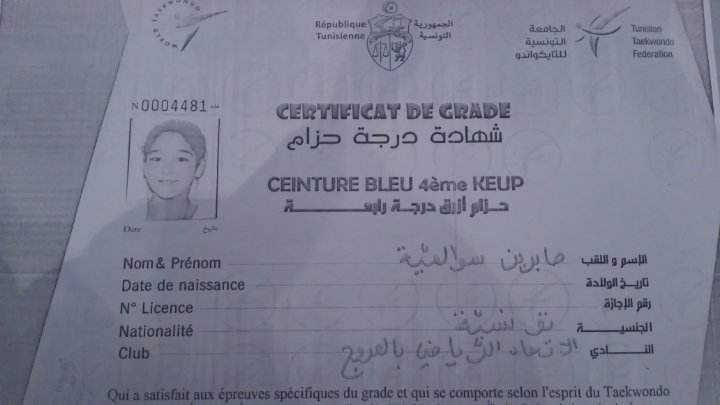 TAEKWONDO
WORLD
République
Tunisienne
الجمهورية
التونسية
الجامعة
التونسية
للتايكواندو
Tunisian
Taekwondo
Federation
N 0004481 عدد
CERTIFICAT DE GRADE
شهادة درجة حزام
CEINTURE BLEU 4ème KEUP
حزام أزرق درجة رابعة
Date تاريخ
Nom & Prénom صابرين سوالمية الإسم و اللقب
Date de naissance تاريخ الولادة
N° Licence رقم الإجازة
Nationalité تونسية الجنسية
Club الاتحاد الرياضي بالمروج النادي
Qui a satisfait aux épreuves spécifiques du grade et qui se comporte selon l'esprit du Taekwondo